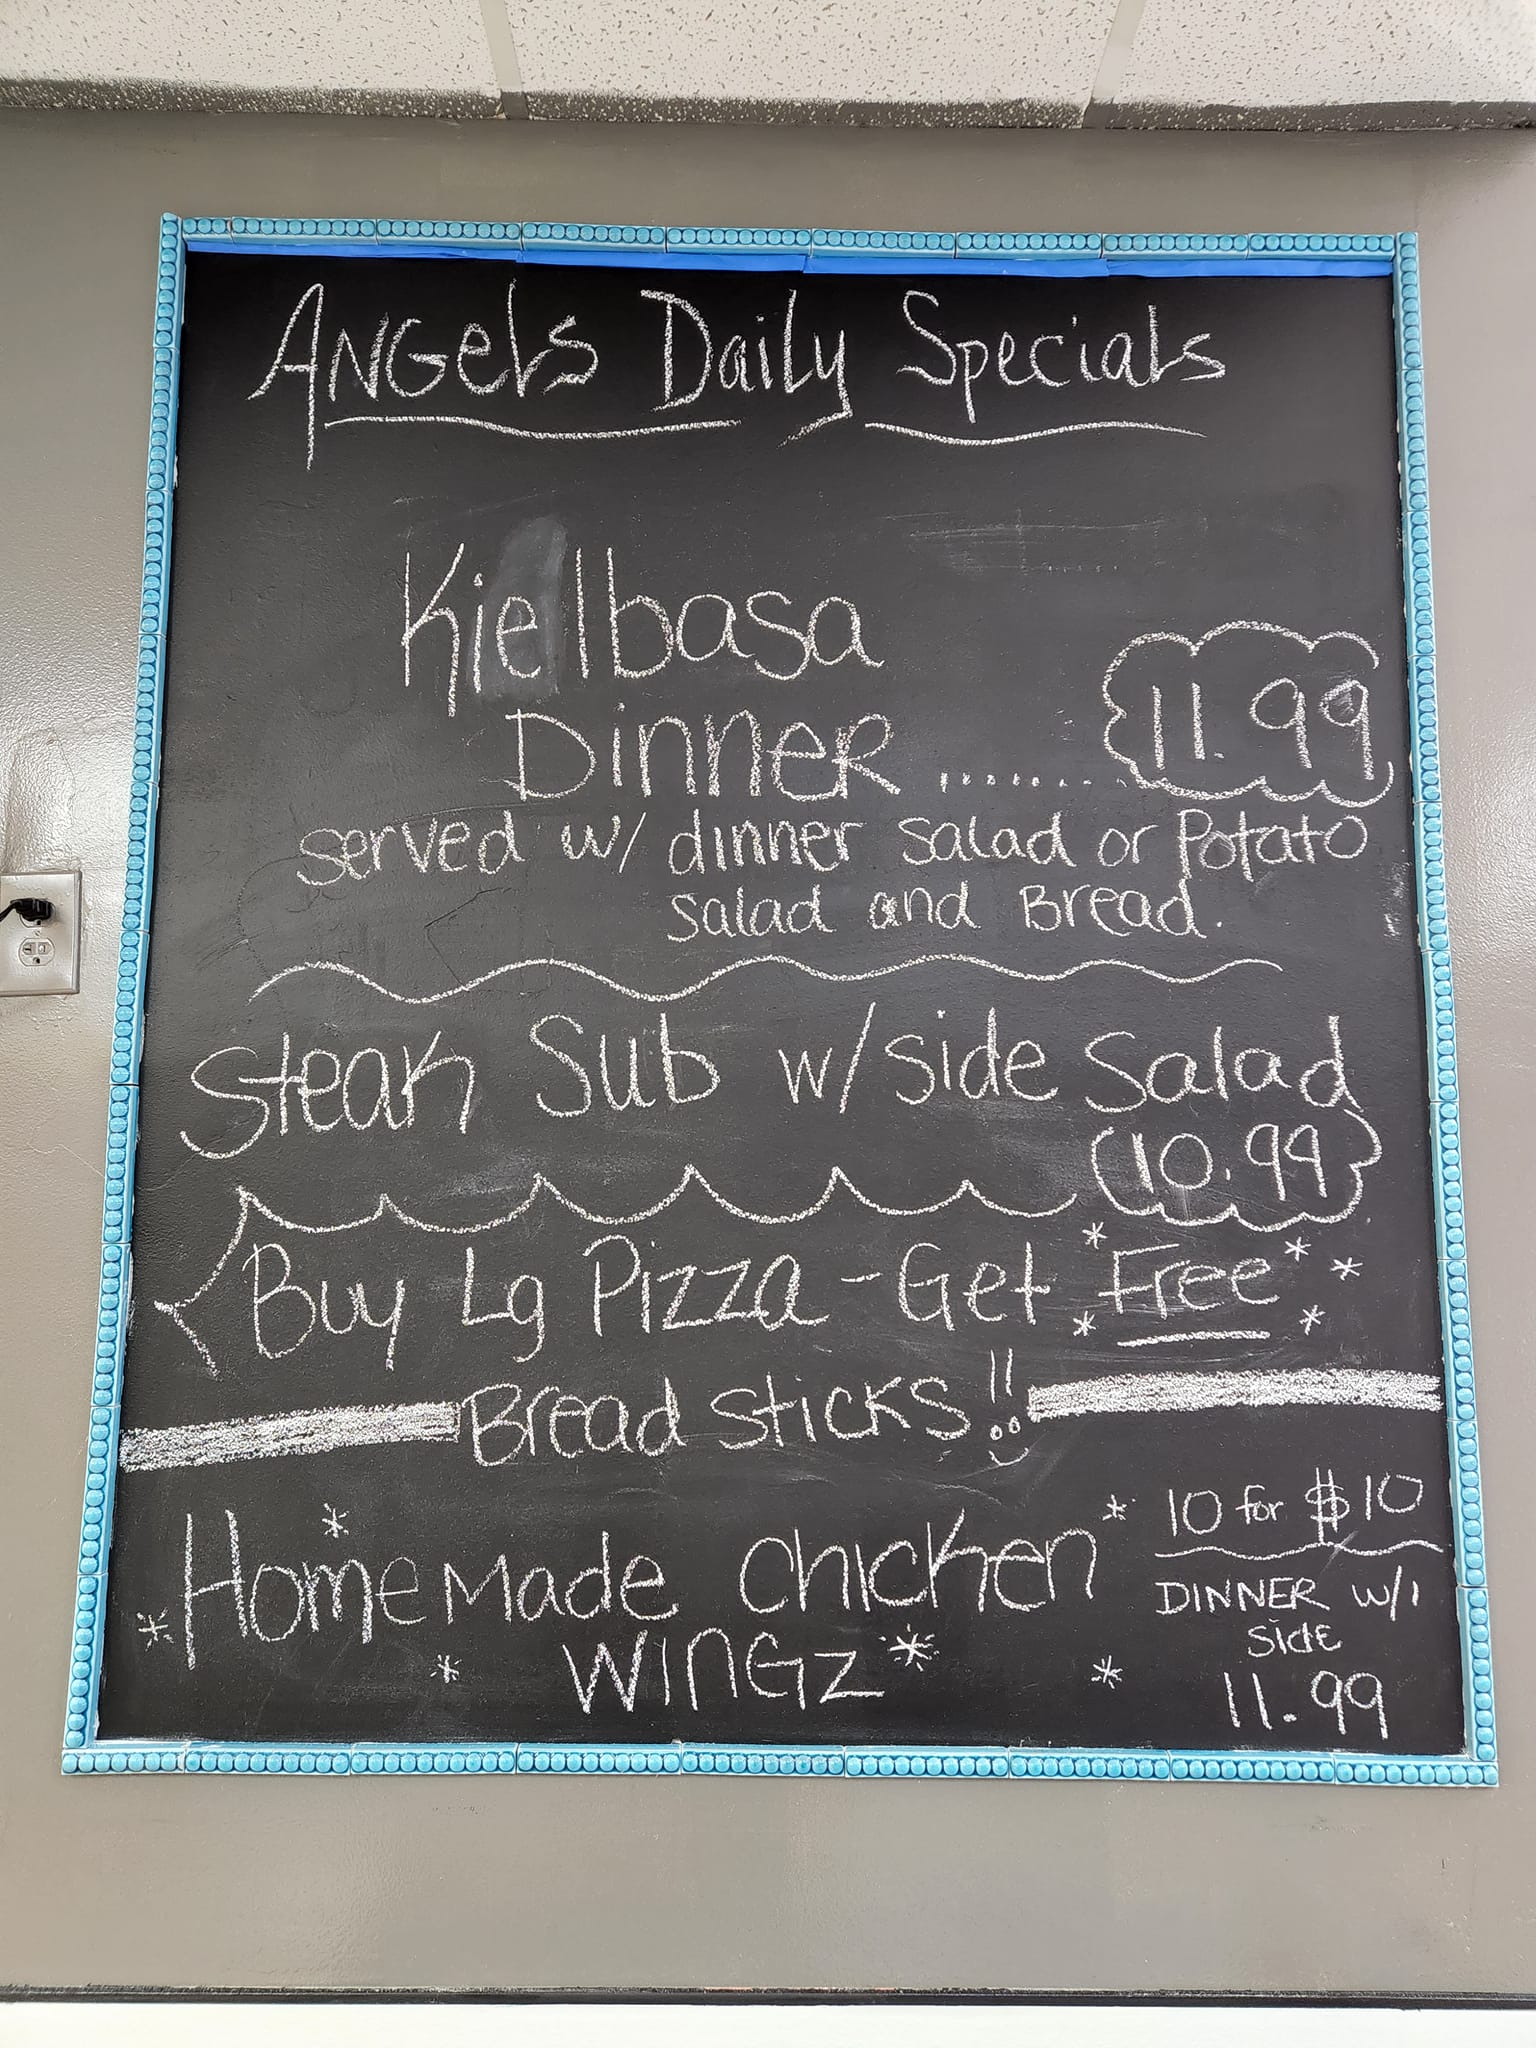 Angels Daily Specials
Kielbasa
Dinner ......... 11.99
served w/ dinner salad or Potato
salad and Bread.
Steak Sub w/ side Salad
10.99
Buy Lg Pizza - Get *Free* *
Bread sticks!!
10 for $10
* Homemade chicken *
wingz *
DINNER w/1
side
11.99